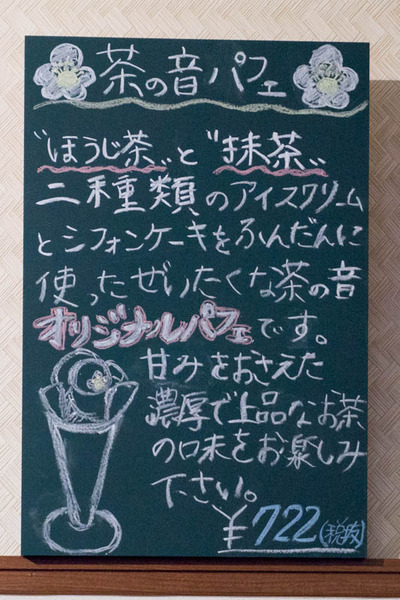 茶の音パフェ
“ほうじ茶”と“抹茶”
二種類のアイスクリーム
とシフォンケーキをふんだんに
使ったぜいたくな茶の音
オリジナルパフェです。
甘みをおさえた
濃厚で上品なお茶
の口味をお楽しみ
下さい。
¥722(税抜)